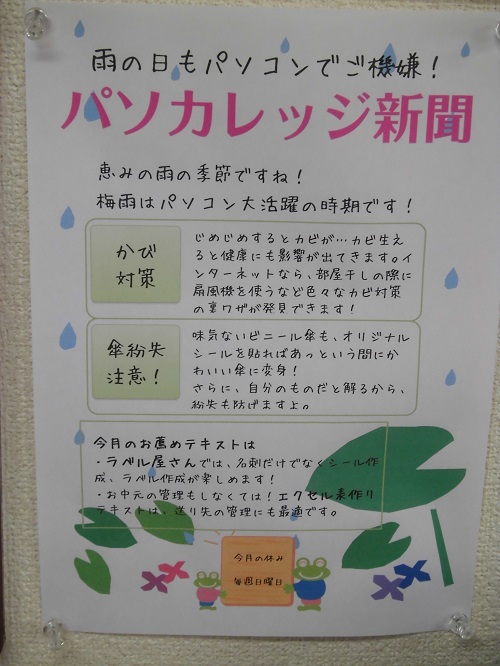 雨の日もパソコンでご機嫌！
パソカレッジ新聞
恵みの雨の季節ですね！
梅雨はパソコン大活躍の時期です！
かび
対策
じめじめするとカビが…カビ生え
ると健康にも影響が出てきます。イ
ンターネットなら、部屋干しの際に
扇風機を使うなど色々なカビ対策
の裏ワザが発見できます！
傘紛失
注意！
味気ないビニール傘も、オリジナル
シールを貼ればあっという間にか
わいい傘に変身！
さらに、自分のものだと解るから、
紛失も防げますよ。
今月のお薦めテキストは
・ラベル屋さんでは、名刺だけでなくシール作
成、ラベル作成が楽しめます！
・お中元の管理もしなくては！エクセル表作り
テキストは、送り先の管理にも最適です。
今月の休み
毎週日曜日